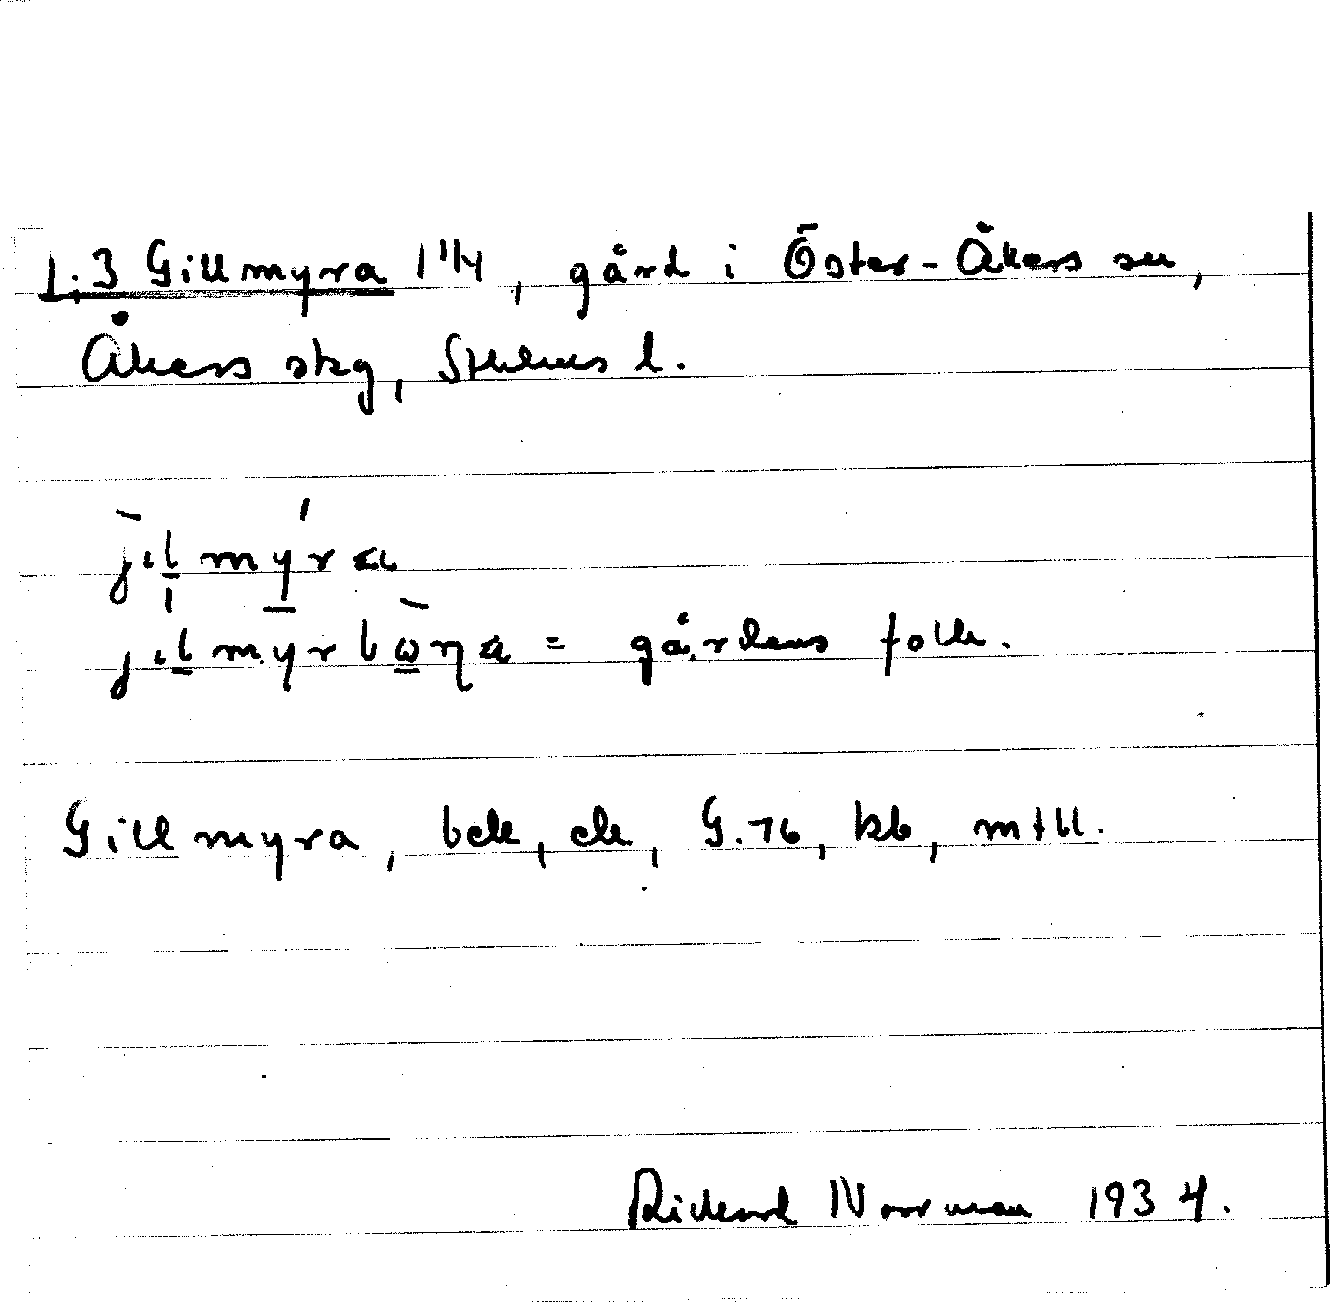 1:3 Gillmyra 1 1/4, gård i Öster-Åkers sn,
Åkers skg, Sthlms l.
jilmýra
jilmyrbòṇa = gårdens folk.
Gillmyra, bck, ck, G.76, kb, mtl.
Rickard Norrman 1934.